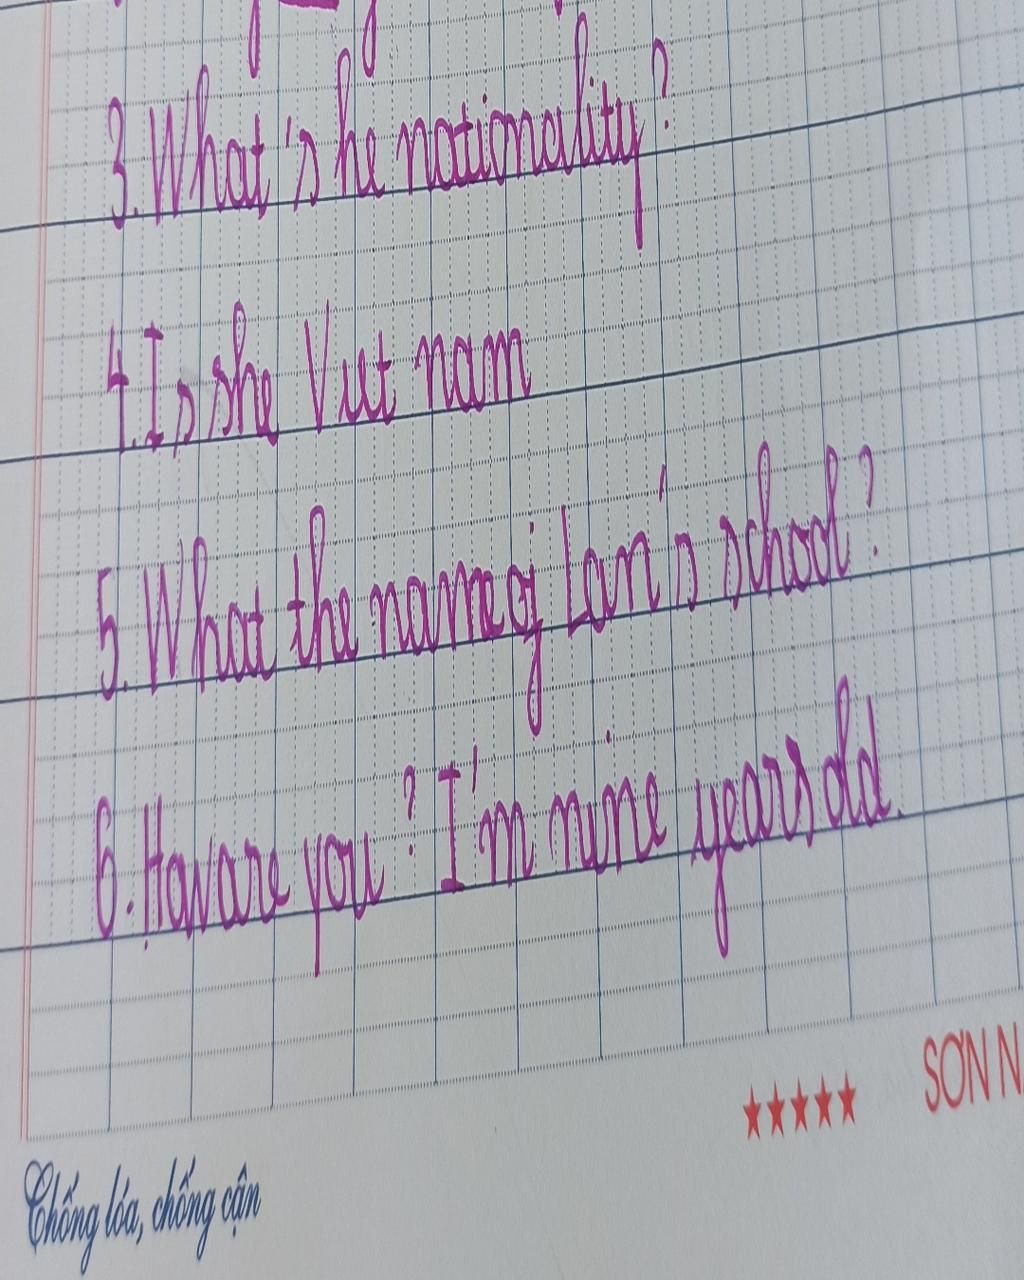 3. What's he nationality?
4. Is she Viet nam
5. What the name of Lan's school?
6. How are you? I'm nine years old.
★★★★★ SƠN N
Chống lóa, chống cận